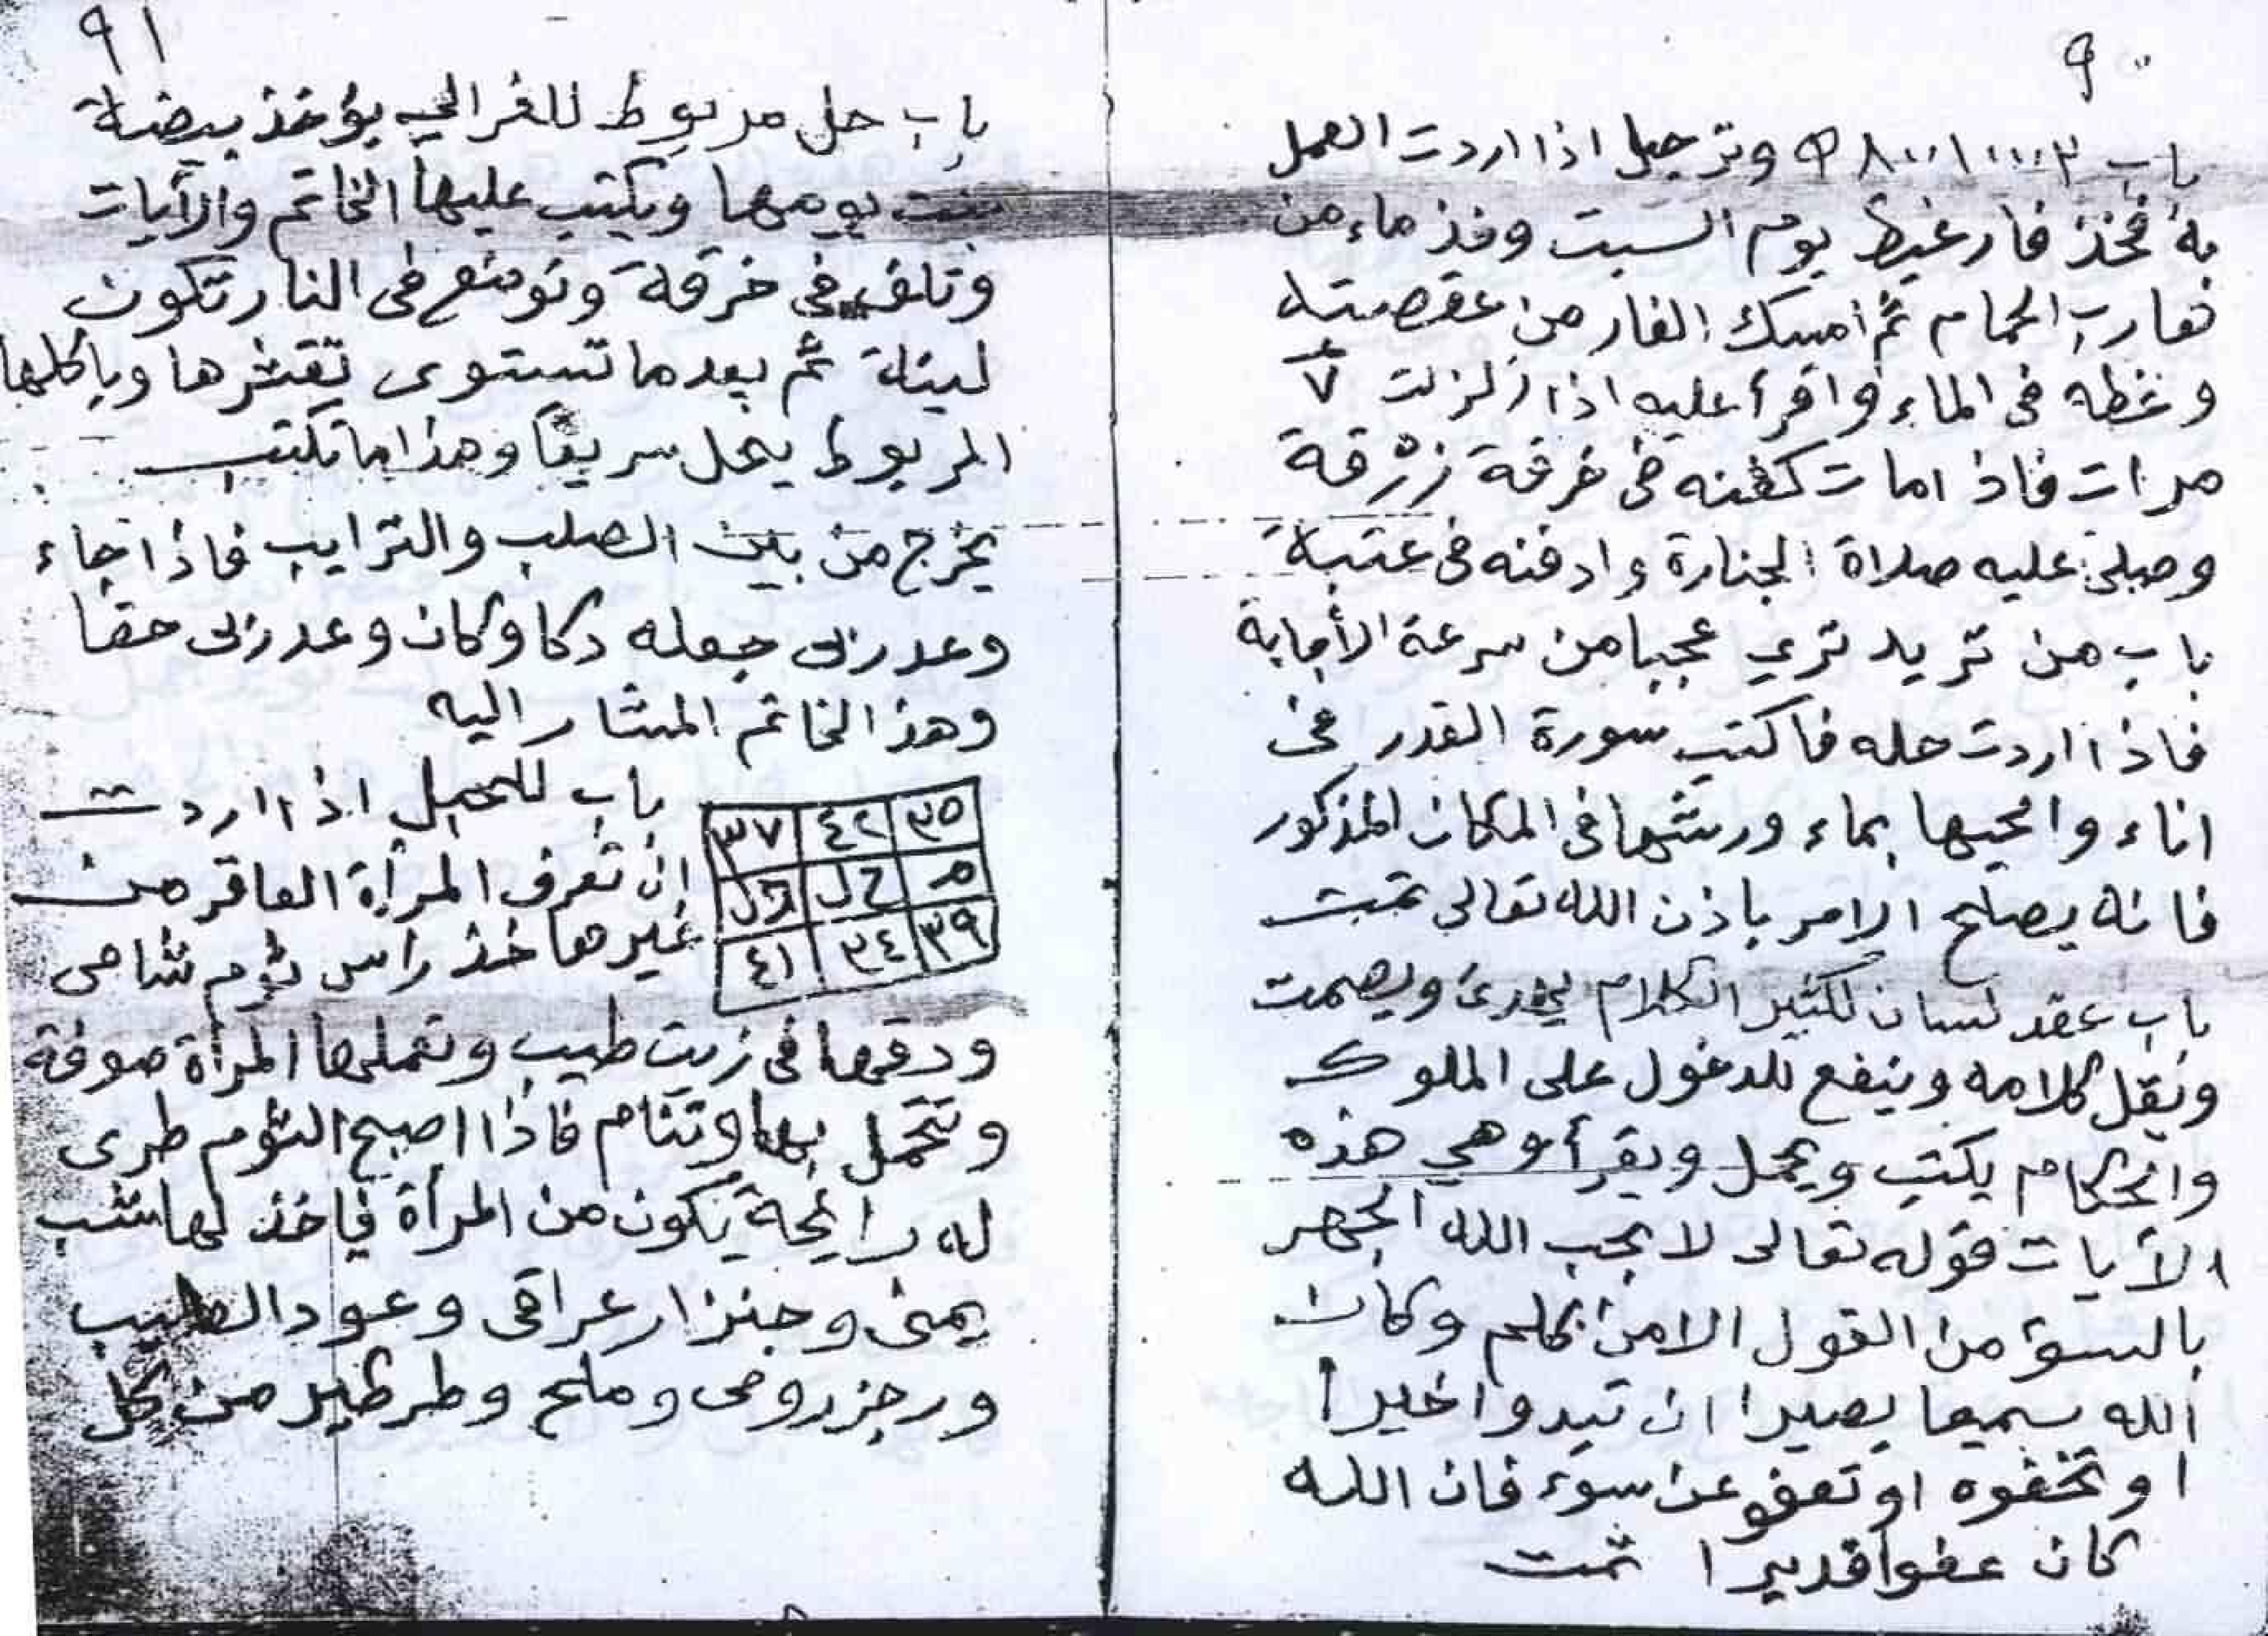 ٩٠
باب ٣ ١٠٠٠ ٨٠٠١ وترحيل اذا اردت العمل
به فخذ فار غيط يوم السبت وخذ ماء من
الحمام ثم امسك الفار من
وغطه فى الماء واقرأ عليه اذا زلزلت ٧
مرات فاذا مات كفنه فى خرقة زرقة
وصلى عليه صلاة الجنازة وادفنه فى عتبة
باب من تريد تري عجبا من سرعة الأجابة
فاذا اردت حله فاكتب سورة القدر فى
اناء وامحيها بماء ورشها فى المكان المذكور
فانه يصلح الامر باذن الله تعالى تمت
باب عقد لسان لكثير الكلام ويصمت
ويقل كلامه وينفع للدخول على الملوك
والحكام يكتب ويحمل ويقرأ وهي هذه
الأيات قوله تعالى لا يحب الله الجهر
بالسوء من القول الا من ظلم وكان
الله سميعا بصيرا ان تبدوا خيرا
او تخفوه او تعفو عن سوء فان الله
كان عفوا قديرا تمت
٩١
باب حل مربوط للغزالي يؤخذ بيضة
بنت يومها ويكتب عليها الخاتم والآيات
وتلف فى خرقة وتوضع فى النار تكون
لينة ثم بعد ما تستوى تقشرها وياكلها
المربوط ينحل سريعاً وهذا ما تكتب
يخرج من بين الصلب والترايب فاذا جاء
وعد ربى جعله دكا وكان وعد ربى حقا
وهذ الخاتم المشار اليه
٣٥ ٤٢ ٣٧
٤١ ٣٤ ٣٩
باب للحبل اذا اردت
ان تعرف المرأة العاقر من
غيرها خذ راس ثوم شامى
ودقها فى زيت طيب وتعملها المرأة صوفة
وتتحمل بها وتنام فاذا اصبح الثوم طرى
له رايحة يكون من المرأة فياخذ لها شب
يمنى وجنزار عراقى وعود الطيب
ورجز رومى وملح وطرطير من كل